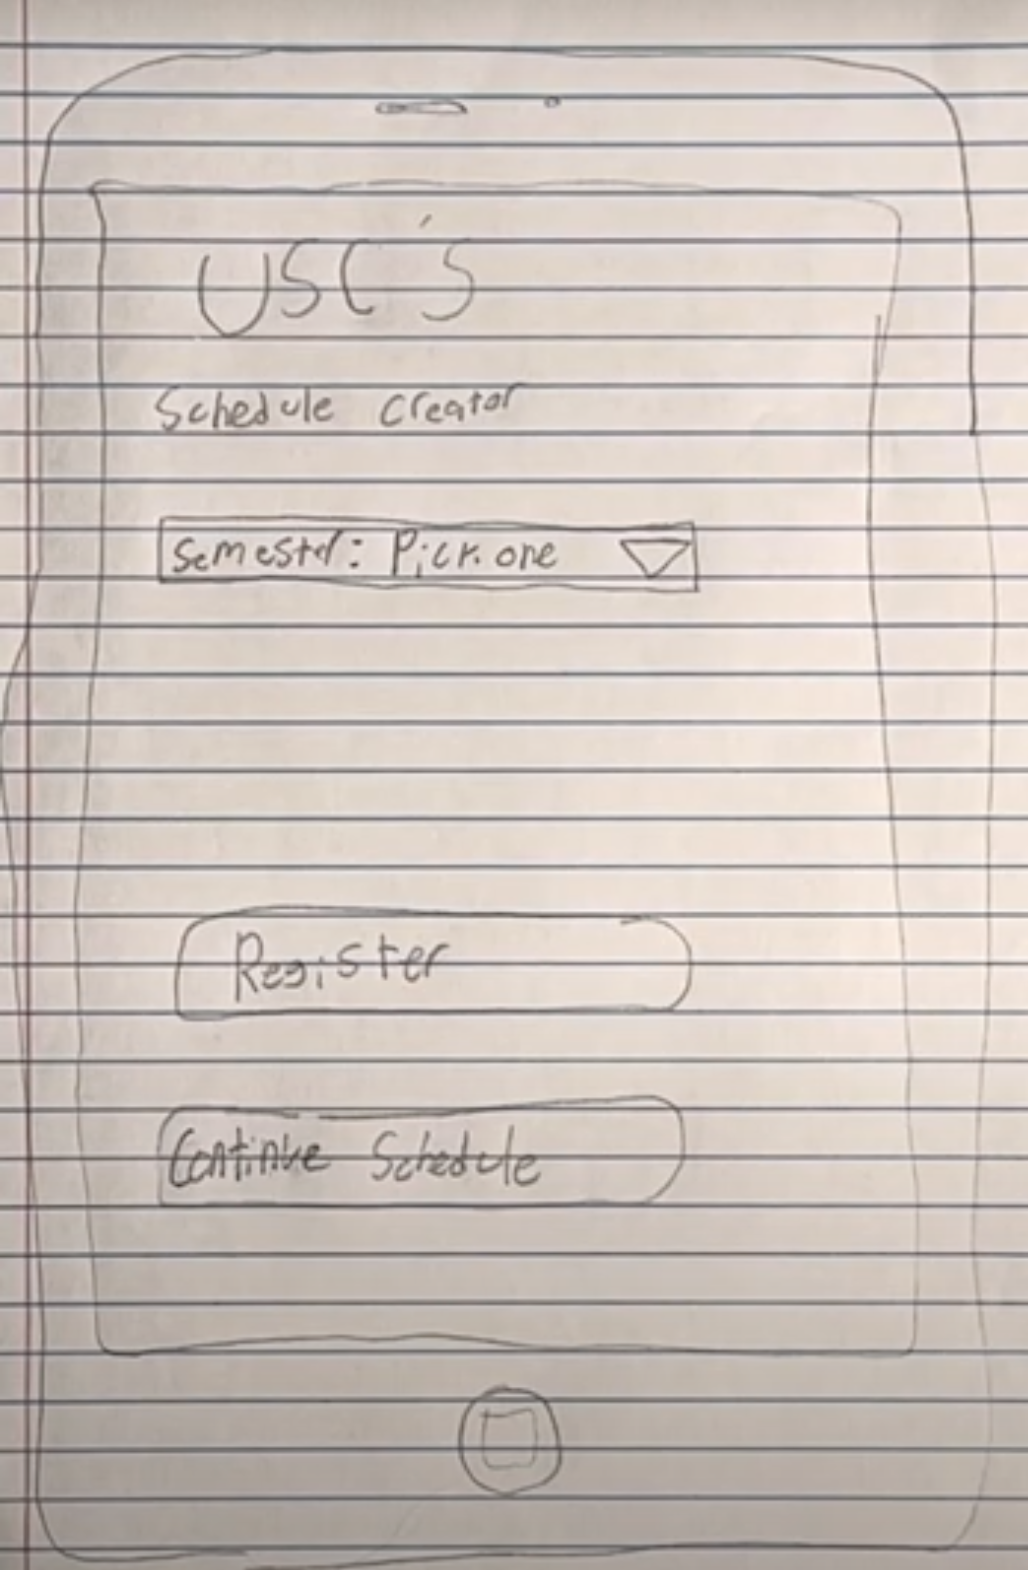 USC's
Schedule creator
Semester: Pick one
Register
Continue Schedule